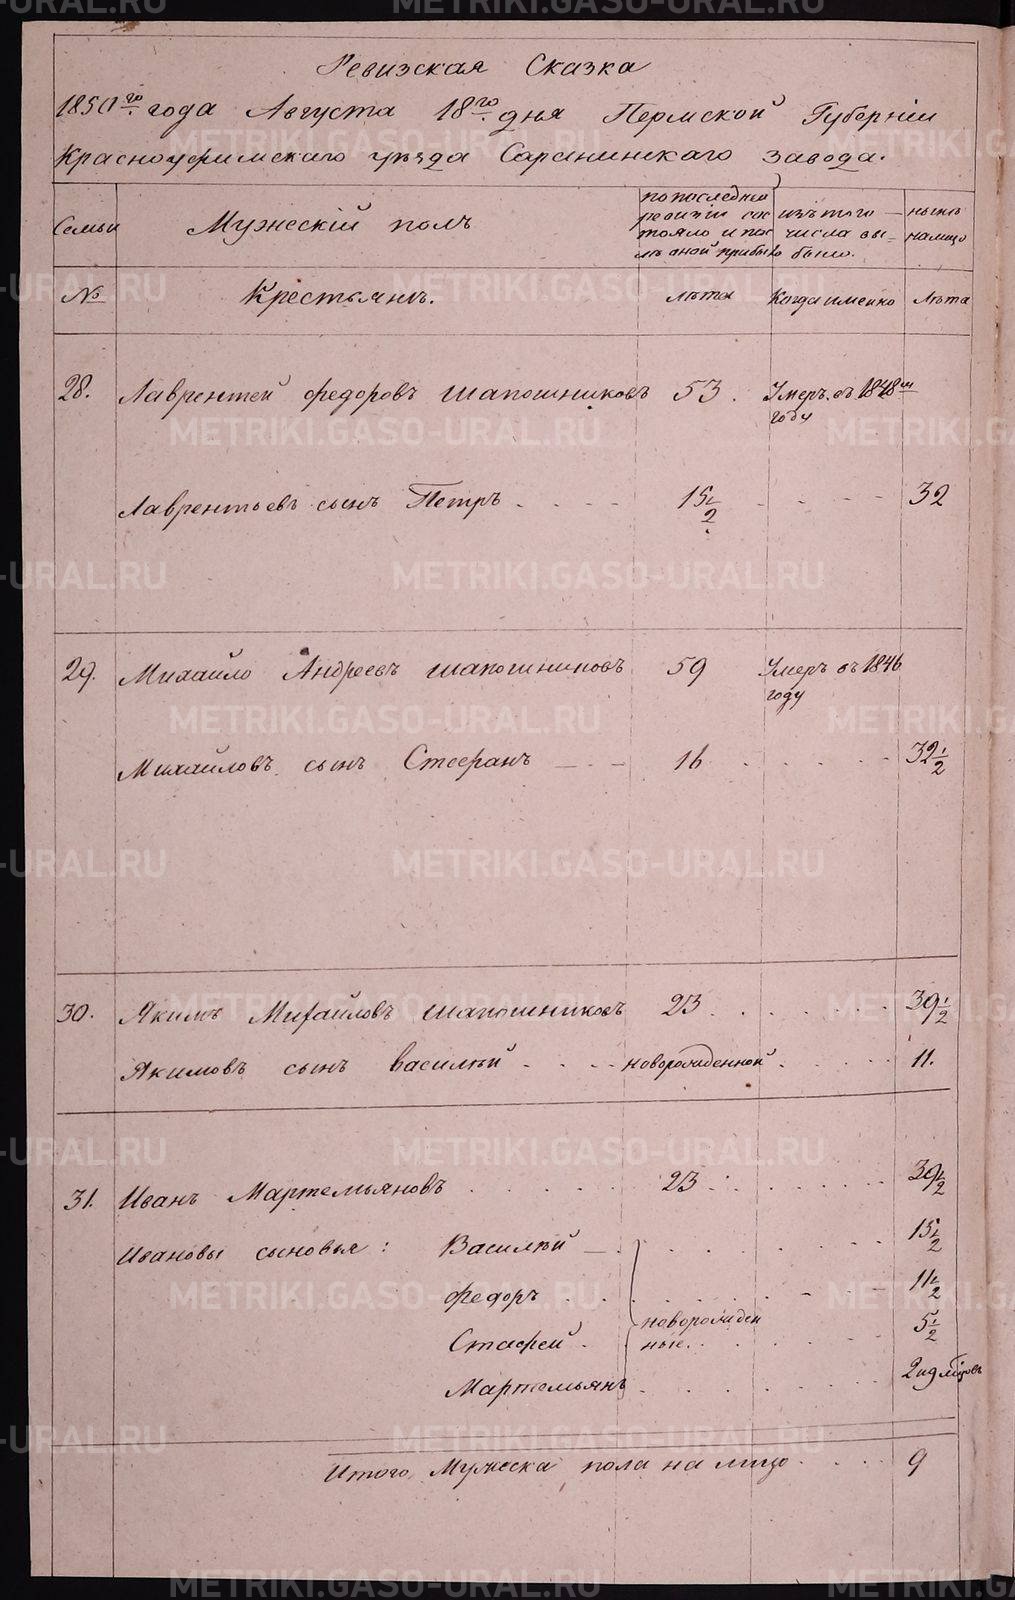 Ревизская Сказка
1850го года Августа 18го дня Пермской Губерніи
Красноуфимскаго уѣзда Саранинскаго завода.
Семьи Мужескій полъ по последней ревизіи состояло и послѣ оной прибыло изъ того числа выбыло. нынѣ налицо
№ Крестьянъ. лѣта Когда именно Лѣта
28. Лаврентей Федоровъ Шапошниковъ 53. Умеръ въ 1848м году
Лаврентьевъ сынъ Петръ 15 1/2 32
29. Михайло Андреевъ Шапошниковъ 59 Умеръ въ 1846 году
Михайловъ сынъ Стефанъ 16 32 1/2
30. Якимъ Михайловъ Шапошниковъ 23 39 1/2
Якимовъ сынъ Василій новорожденной 11.
31. Иванъ Мартемьяновъ 23 39 1/2
Ивановы сыновья: Василій 15 1/2
Федоръ 11 1/2
Стафей новорожденные. 5 1/2
Мартемьянъ 2 ндѣл
Итого Мужеска пола на лицо 9
METRIKI.GASO-URAL.RU